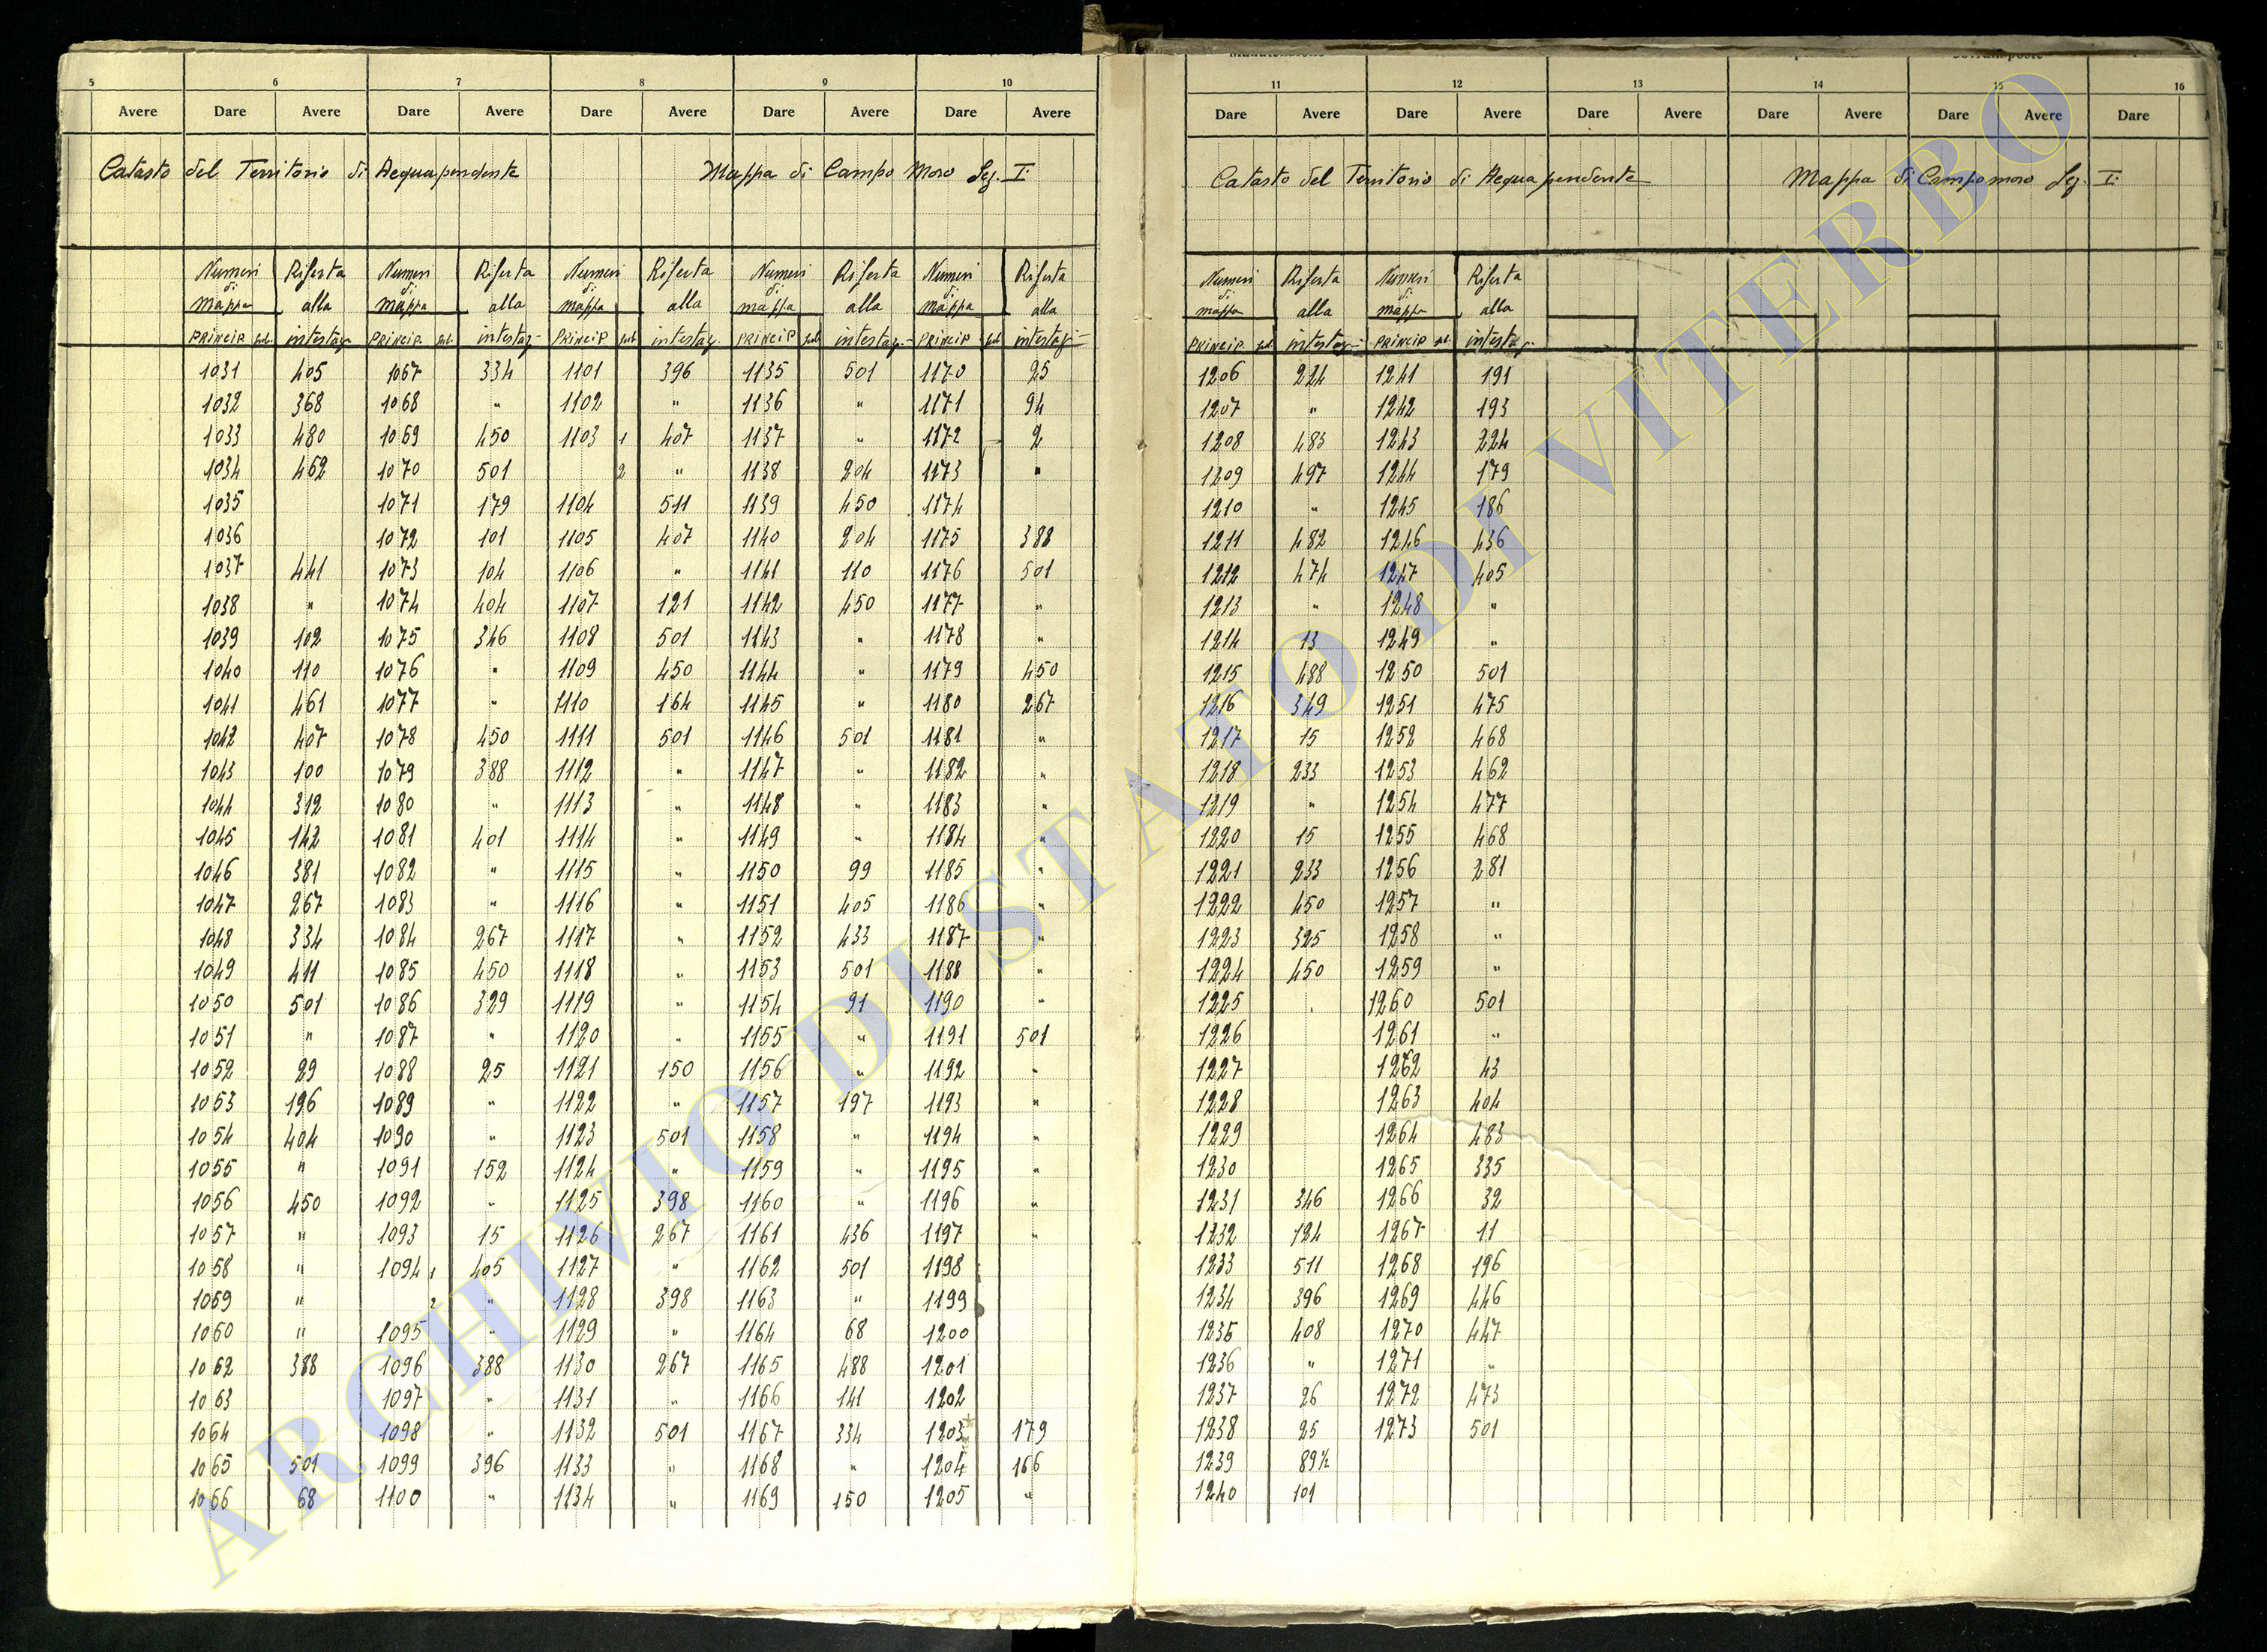 5 6 7 8 9 10
Avere Dare Avere Dare Avere Dare Avere Dare Avere Dare Avere
Catasto del Territorio di Acquapendente Mappa di Campo Moro Sez. I.
Numeri Riferta Numeri Riferta Numeri Riferta Numeri Riferta Numeri Riferta
di di di di di
mappa alla mappa alla mappa alla mappa alla mappa alla
Princip sub. intestaz. Princip sub. intestaz. Princip sub intestaz. Princip sub intestaz. Princip sub intestaz.
1031 405 1067 334 1101 396 1135 501 1170 25
1032 368 1068 " 1102 " 1136 " 1171 94
1033 480 1069 450 1103 1 407 1137 " 1172 2
1034 462 1070 501 2 " 1138 204 1173 "
1035 1071 179 1104 511 1139 450 1174
1036 1072 101 1105 407 1140 204 1175 388
1037 441 1073 104 1106 " 1141 110 1176 501
1038 " 1074 404 1107 121 1142 450 1177 "
1039 102 1075 346 1108 501 1143 " 1178 "
1040 110 1076 " 1109 450 1144 " 1179 450
1041 461 1077 " 1110 164 1145 " 1180 267
1042 407 1078 450 1111 501 1146 501 1181 "
1043 100 1079 388 1112 " 1147 " 1182 "
1044 312 1080 " 1113 " 1148 " 1183 "
1045 142 1081 401 1114 " 1149 " 1184 "
1046 381 1082 " 1115 " 1150 99 1185 "
1047 267 1083 " 1116 " 1151 405 1186 "
1048 334 1084 267 1117 " 1152 433 1187 "
1049 411 1085 450 1118 " 1153 501 1188 "
1050 501 1086 329 1119 " 1154 91 1190 "
1051 " 1087 " 1120 " 1155 " 1191 501
1052 29 1088 25 1121 150 1156 " 1192 "
1053 196 1089 " 1122 " 1157 197 1193 "
1054 404 1090 " 1123 501 1158 " 1194 "
1055 " 1091 152 1124 " 1159 " 1195 "
1056 450 1092 " 1125 398 1160 " 1196 "
1057 " 1093 15 1126 267 1161 436 1197 "
1058 " 1094 1 405 1127 " 1162 501 1198
1059 " 2 " 1128 398 1163 " 1199
1060 " 1095 " 1129 " 1164 68 1200
1062 388 1096 388 1130 267 1165 488 1201
1063 1097 " 1131 " 1166 141 1202
1064 1098 " 1132 501 1167 334 1203 179
1065 501 1099 396 1133 " 1168 " 1204 166
1066 68 1100 " 1134 " 1169 150 1205 "
11 12 13 14 15 16
Dare Avere Dare Avere Dare Avere Dare Avere Dare Avere Dare
Catasto del Territorio di Acquapendente Mappa di Campo moro Sez. I.
Numeri Riferta Numeri Riferta
di di
mappa alla mappa alla
Princip sub intestaz. Princip sub. intestaz.
1206 224 1241 191
1207 " 1242 193
1208 483 1243 224
1209 497 1244 179
1210 " 1245 186
1211 482 1246 436
1212 474 1247 405
1213 " 1248 "
1214 13 1249 "
1215 488 1250 501
1216 349 1251 475
1217 15 1252 468
1218 233 1253 462
1219 " 1254 477
1220 15 1255 468
1221 233 1256 281
1222 450 1257 "
1223 325 1258 "
1224 450 1259 "
1225 1260 501
1226 1261 "
1227 1262 43
1228 1263 404
1229 1264 483
1230 1265 335
1231 346 1266 32
1232 124 1267 11
1233 511 1268 196
1234 396 1269 446
1235 408 1270 447
1236 " 1271 "
1237 26 1272 473
1238 25 1273 501
1239 89½
1240 101
ARCHIVIO DI STATO DI VITERBO